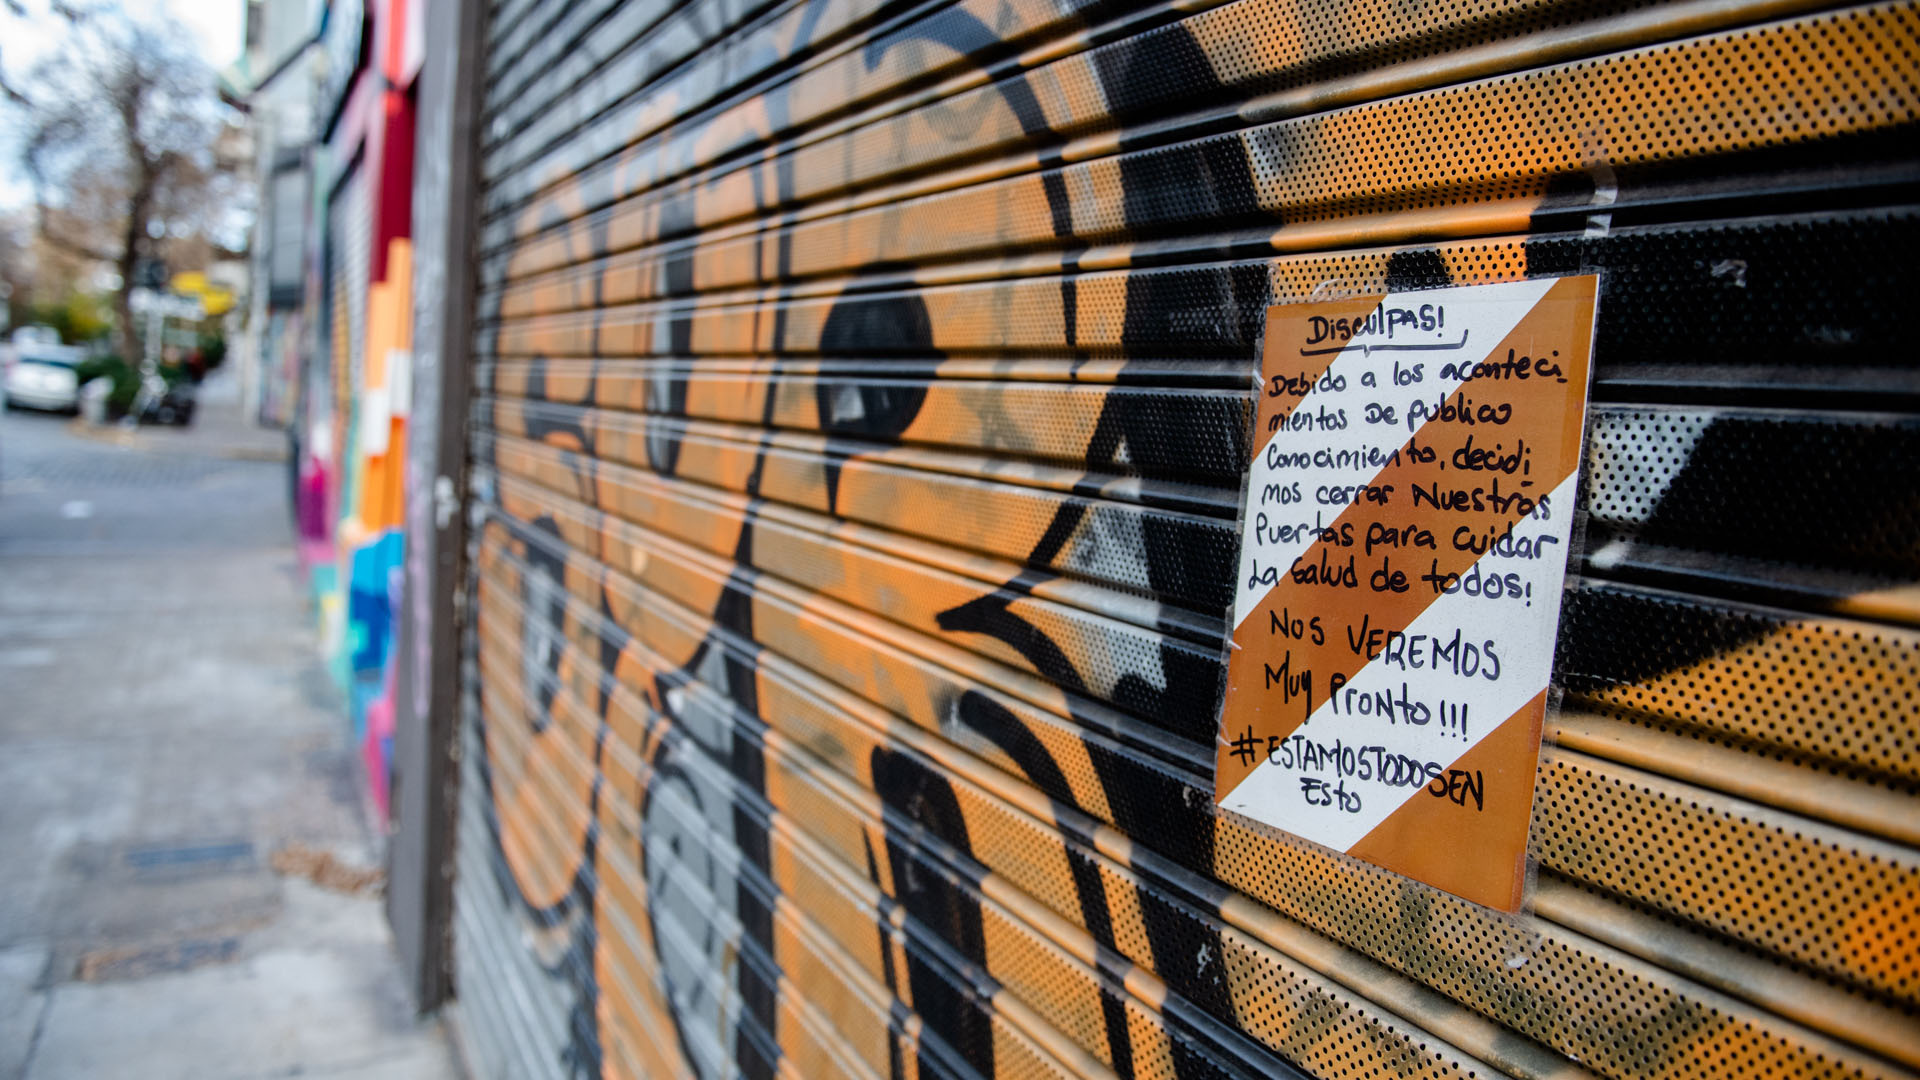 DiscuLPAS!
Debido a los aconteci_
mientos De publico
Conocimiento, decidi
mos cerrar Nuestras
Puertas para cuidar
La Salud de todos!
Nos VEREMOS
Muy Pronto!!!
#ESTAMOSTODOSEN
Esto